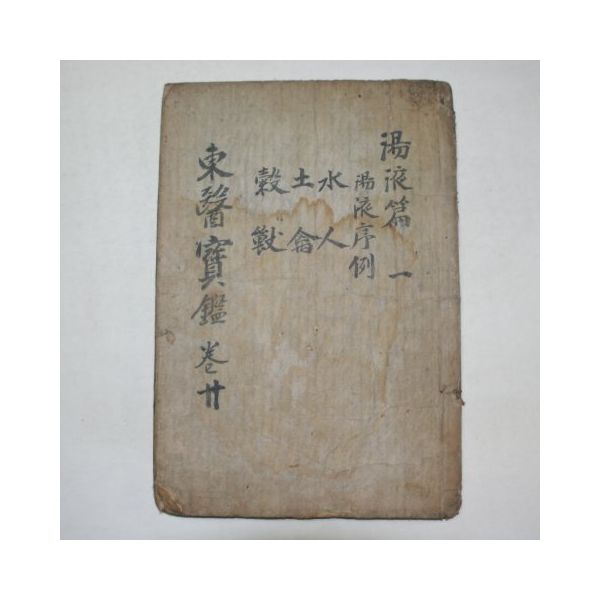 湯液篇 一
湯液序例
水 人
土 禽
穀 獸
東醫寶鑑 卷廿